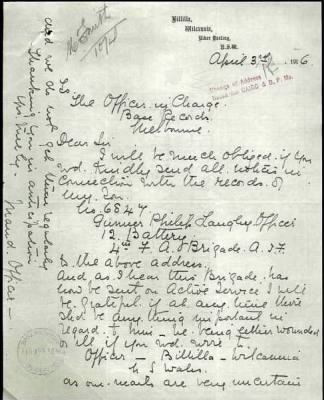 Billilla,
Wilcannia,
River Darling,
N.S.W.
April 3rd 1916
Change of Address
To
The Officer in Charge
Base Records
Melbourne
Dear Sir
I will be much obliged if you
wd. kindly send all notices in
connection with the records of
my son
No. 6847
Gunner Philip Langley Officer
12 Battery
4th F. A. Brigade A.I.F
to the above address.
And as I hear this Brigade has
now been sent on Active Service I will
be grateful if at any time there
shd be any thing important in
regard to him – he being either wounded
or ill if you wd. write to
Officer – Billilla – Wilcannia
N S Wales
as our mails are very uncertain
and we do not get them regularly
Thanking you in anticipation
Yrs truly
Maud Officer –